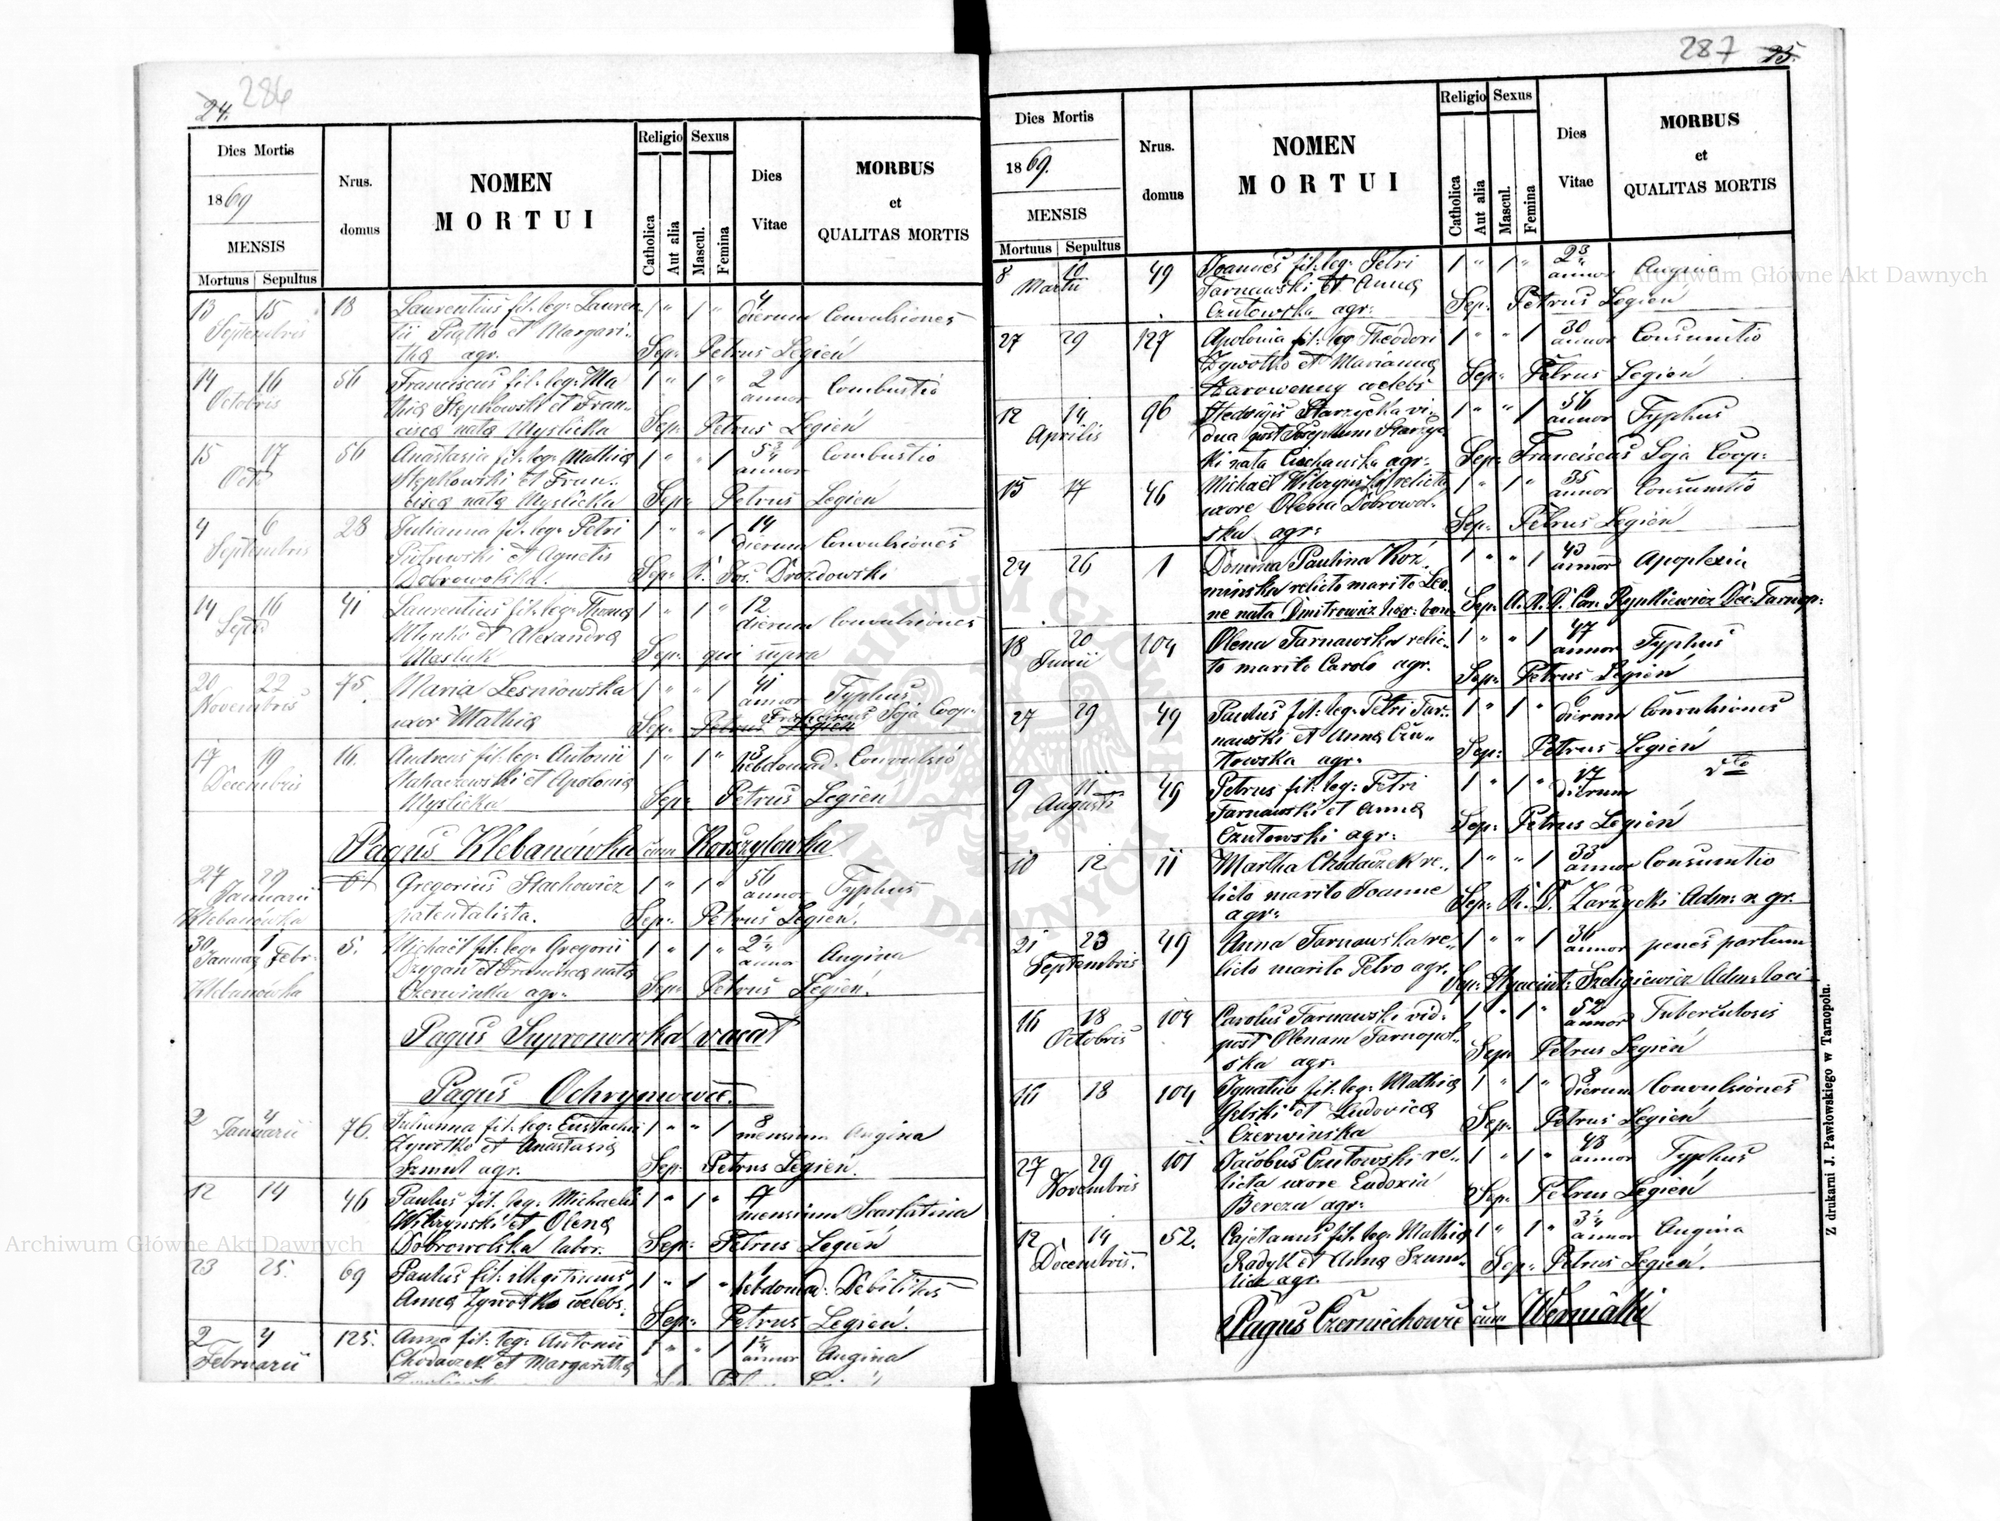 24. 286
Dies Mortis
1869
MENSIS
Mortuus Sepultus
Nrus. domus
NOMEN
MORTUI
Religio
Catholica
Aut alia
Sexus
Mascul.
Femina
Dies
Vitae
MORBUS
et
QUALITAS MORTIS
13 15 18 Laurentius fil: leg: Lauren- 1 " 1 " 4
Septembris tii Piątko et Margari- dierum Convulsiones
thæ agr. Sep: Petrus Legień
14 16 56 Franciscus fil: leg: Ma 1 " 1 " 2 Combustio
Octobris thiæ Stępkowski et Fran- annor
ciscæ nata Myslicka Sep: Petrus Legień
15 17 56 Anastasia fil: leg: Mathiæ 1 " " 1 Combustio
Octb Stępkowski et Fran- annor
ciscæ nata Myslicka Sep: Petrus Legień
4 6 28 Julianna fil: leg: Petri 1 " " 1 14
Septembris et Agnetis dierum Convulsiones
Dobrowolska. Sep: R. Jos. Drozdowski
14 16 41 Laurentius fil: leg: Thomæ 1 " 1 " 12
Septb et Alexandræ dierum Convulsiones
Masluk Sep: qui supra
20 22 75. Maria Lesniowska 1 " " 1 41 Typhus
Novembris annor
uxor Mathiæ Sep: Petrus Legień Franciscus Soja Coop.
17 19 16. Andreas fil: leg: Antonii 1 " 1 " 3
Decembris et Apoloniæ hebdomad: Convulsio
Myslicka Sep: Petrus Legień
Pagus Klebanówka cum Koszylowka
27 29 61 Gregorius Stachowicz 1 " 1 " 56 Typhus
Januarii annor
Klebanówka patentalista. Sep: Petrus Legień.
30 1 5. Michaël fil: leg: Gregorii 1 " 1 " Angina
Januar Febr. Dzygan et Franciscæ nata annor
Klebanówka Czerwinka agr. Sep: Petrus Legień.
Pagus Supronowka vacat
Pagus Ochrymowce.
2 4 76. Julianna fil: leg: Eustachii 1 " " 1 8
Januarii Zywotko et Anastasiæ mensium Angina
Szmul agr. Sep: Petrus Legień.
12 14 46 Paulus fil: leg: Michaelis 1 " 1 "
Witzynski et Olenæ mensium Scarlatina
Dobrowolska labor. Sep: Petrus Legień
23 25. 69 Paulus fil: illegitimus 1 " 1 " 1
Annæ Zywotko cœlebs. hebdomad: Debilitas
Sep: Petrus Legień.
2 4 125. Anna fil: leg: Antonii 1 " " 1
Februarii Chodaczek et Margarithæ annor Angina
287 25.
Dies Mortis
1869.
MENSIS
Mortuus Sepultus
Nrus.
domus
NOMEN
MORTUI
Religio
Catholica
Aut alia
Sexus
Mascul.
Femina
Dies
Vitae
MORBUS
et
QUALITAS MORTIS
8 10 49 Joannes fil: leg: Petri 1 " 1 "
Martii Tarnawski et Annæ annor Angina
Czutowska agr: Sep: Petrus Legień
27 29 127 Apolonia fil: leg: Theodori 1 " " 1 30 Consumtio
Zywotko et Mariannæ annor
cœlebs Sep: Petrus Legień
12 14 96 Hedwigis Starzycka vi- 1 " " 1 56 Typhus
Aprilis dua post Josephum Starzyc- annor
ki nata Ciechanska agr. Sep: Franciscus Soja Coop:
15 17 46 Michaël Witzynski relicta 1 " 1 " 35 Consumtio
uxore Olena Dobrowol- annor
ska agr: Sep: Petrus Legień
24 26 1 Domina Paulina Koź- 1 " " 1 43 Apoplexia
minska relicto marito Leo- annor
ne nata Dmitrowicz hær: bon: Sep: A. R. D. Can: Rypkiewicz Dec: Tarnop:
18 20 104 Olena Tarnawska relic- 1 " " 1 47 Typhus
Junii to marito Carolo agr. annor
Sep: Petrus Legień
27 29 49 Paulus fil: leg: Petri Tar- 1 " 1 " 6
nawski et Annæ Czu- dierum Convulsiones
towska agr: Sep: Petrus Legień
9 11 49 Petrus fil: leg: Petri 1 " 1 " 17 dto
Augusti Tarnawski et Annæ dierum
Czutowski agr: Sep: Petrus Legień
10 12 11 Martha Chodaczek re- 1 " " 1 33 Consumtio
licto marito Joanne annor
agr: Sep: R. D. Zarzycki Adm: r. gr.
21 23 49 Anna Tarnawska re- 1 " " 1 36 penes partum
Septembris licto marito Petro agr. annor
Sep: Hyacint: Szeligiewicz Adm: loci
16 18 104 Carolus Tarnawski vid: 1 " 1 " 52 Tuberculosis
Octobris post Olenam Tarnopol- annor
ska agr. Sep: Petrus Legień
16 18 104 Ignatius fil: leg: Mathiæ 1 " 1 " 8
Gelski et Ludovicæ dierum Convulsiones
Czerwińska Sep: Petrus Legień
27 29 101 Jacobus Czutowski re- 1 " 1 " 48 Typhus
Novembris licta uxore Eudoxia annor
Bereza agr: Sep: Petrus Legień
12 14 52. Cajetanus fil: leg: Mathiæ 1 " 1 " Angina
Decembris. Radyk et Annæ annor
agr. Sep: Petrus Legień.
Pagus Czerniechowce cum Werniaki
Z drukarni J. Pawłowskiego w Tarnopolu.
Archiwum Główne Akt Dawnych
Archiwum Główne Akt Dawnych
ARCHIWUM GŁÓWNE AKT DAWNYCH